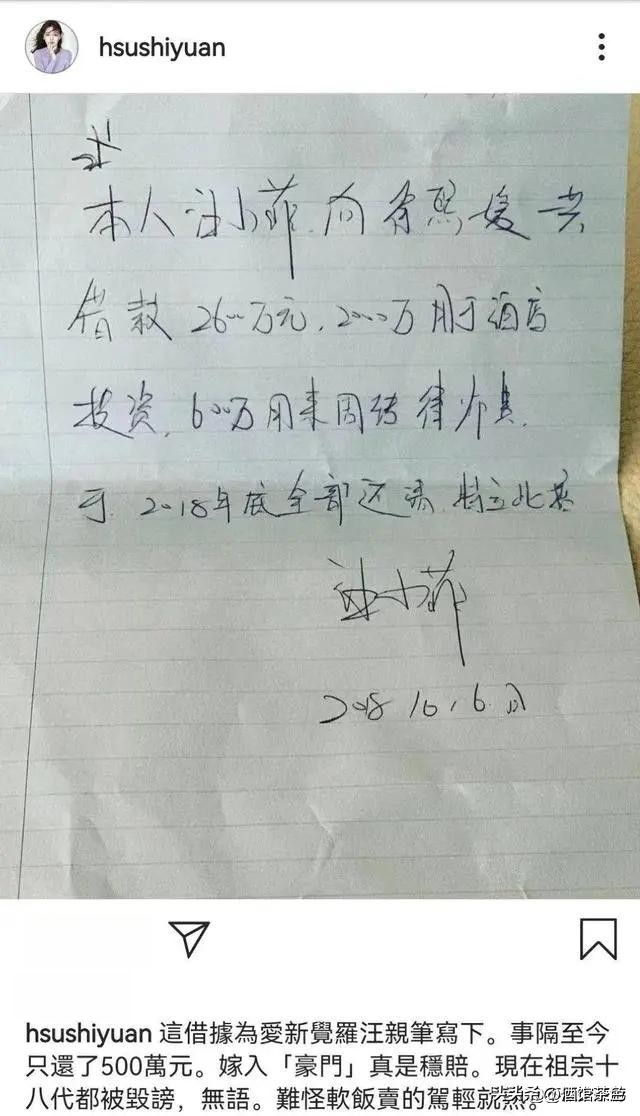 hsushiyuan
本人汪小菲，向徐熙媛共
借款2600万元，2000万用于酒店
投资，600万用来周转律师费，
于2018年底全部还清，特立此据
汪小菲
2018 10，6日
hsushiyuan 這借據為愛新覺羅汪親筆寫下。事隔至今
只還了500萬元。嫁入「豪門」真是穩賠。現在祖宗十
八代都被毀謗，無語。難怪軟飯賣的駕輕就
头条 @酒馆茶壶